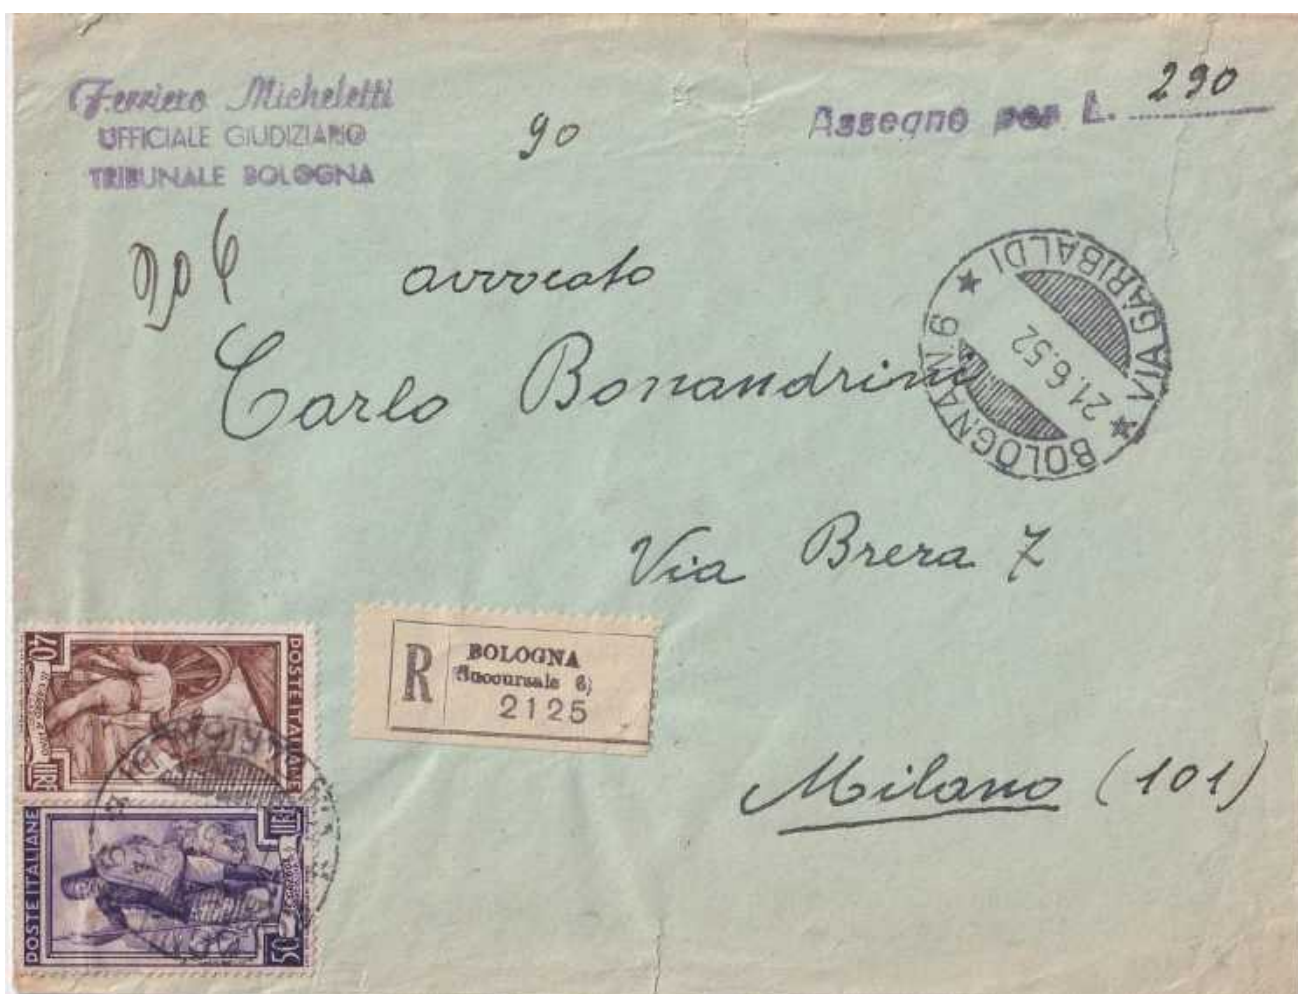 Ferriero Micheletti
UFFICIALE GIUDIZIARIO
TRIBUNALE BOLOGNA
90
Assegno per L. 290
avvocato
Carlo Bonandrini
BOLOGNA N. 9
VIA GARIBALDI
21.6.52
Via Brera 7
R
BOLOGNA
(Succursale 6)
2125
Milano (101)
POSTE ITALIANE
LIRE 40
POSTE ITALIANE
LIRE 50